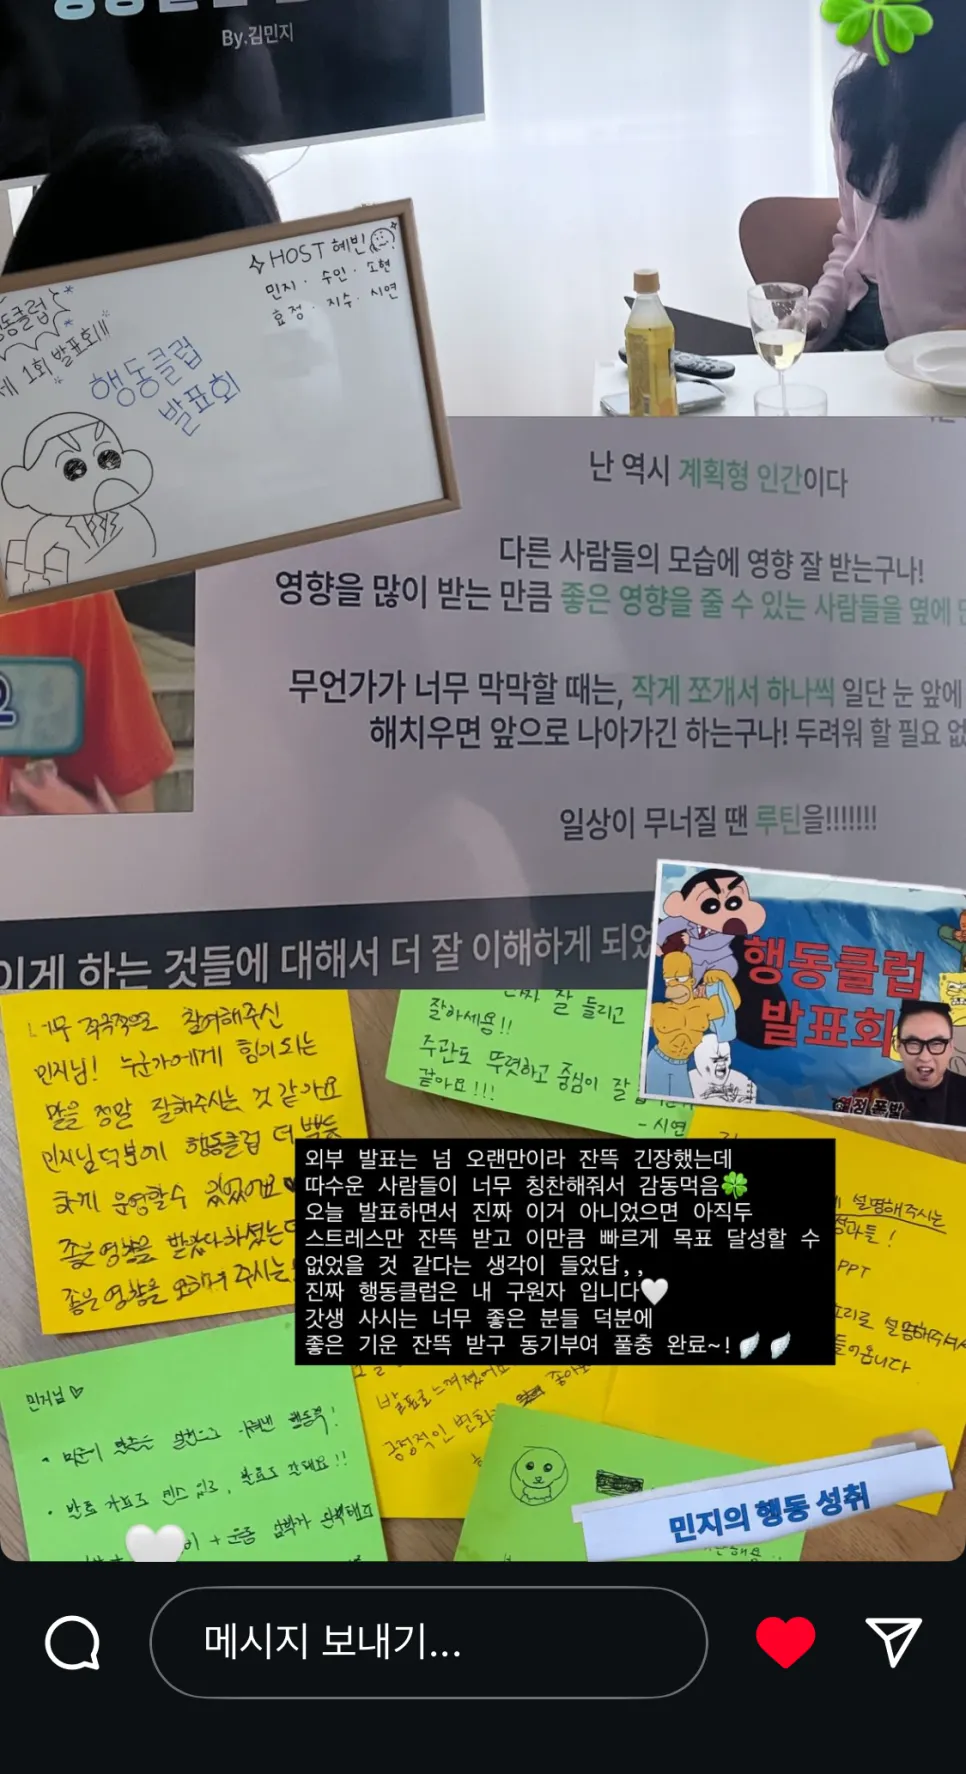 By.김민지
✧HOST 혜빈
민지 · 수인 · 소현
효정 · 지수 · 시연
제 1회 발표회!!
행동클럽
발표회
난 역시 계획형 인간이다
다른 사람들의 모습에 영향 잘 받는구나!
영향을 많이 받는 만큼 좋은 영향을 줄 수 있는 사람들을 옆에
무언가가 너무 막막할 때는, 작게 쪼개서 하나씩 일단 눈 앞에
해치우면 앞으로 나아가긴 하는구나! 두려워 할 필요
일상이 무너질 땐 루틴을!!!!!!!
하는 것들에 대해서 더 잘 이해하게
행동클럽
발표회
열정 폭발
너무 적극적으로 참여해주신
민지님! 누군가에게 힘이 되는
말을 정말 잘해주시는 것 같아요
민지님 덕분에 행동클럽 더
하게 운영할 수 있었어요
좋은 영향을 받았다 하셨는데
좋은 영향을 오히려 주시는
잘 들리고
잘하세용!!
주관도 뚜렷하고 중심이 잘
같아요!!!
- 시연
외부 발표는 넘 오랜만이라 잔뜩 긴장했는데
따수운 사람들이 너무 칭찬해줘서 감동먹음🍀
오늘 발표하면서 진짜 이거 아니었으면 아직두
스트레스만 잔뜩 받고 이만큼 빠르게 목표 달성할 수
없었을 것 같다는 생각이 들었답,,
진짜 행동클럽은 내 구원자 입니다🤍
갓생 사시는 너무 좋은 분들 덕분에
좋은 기운 잔뜩 받구 동기부여 풀충 완료~!🪽🪽
설명해주시는
PPT
설명해주셔서
들어옵니다
민지님♡
발표로 느껴졌어요
긍정적인 변화
민지의 행동 성취
메시지 보내기...